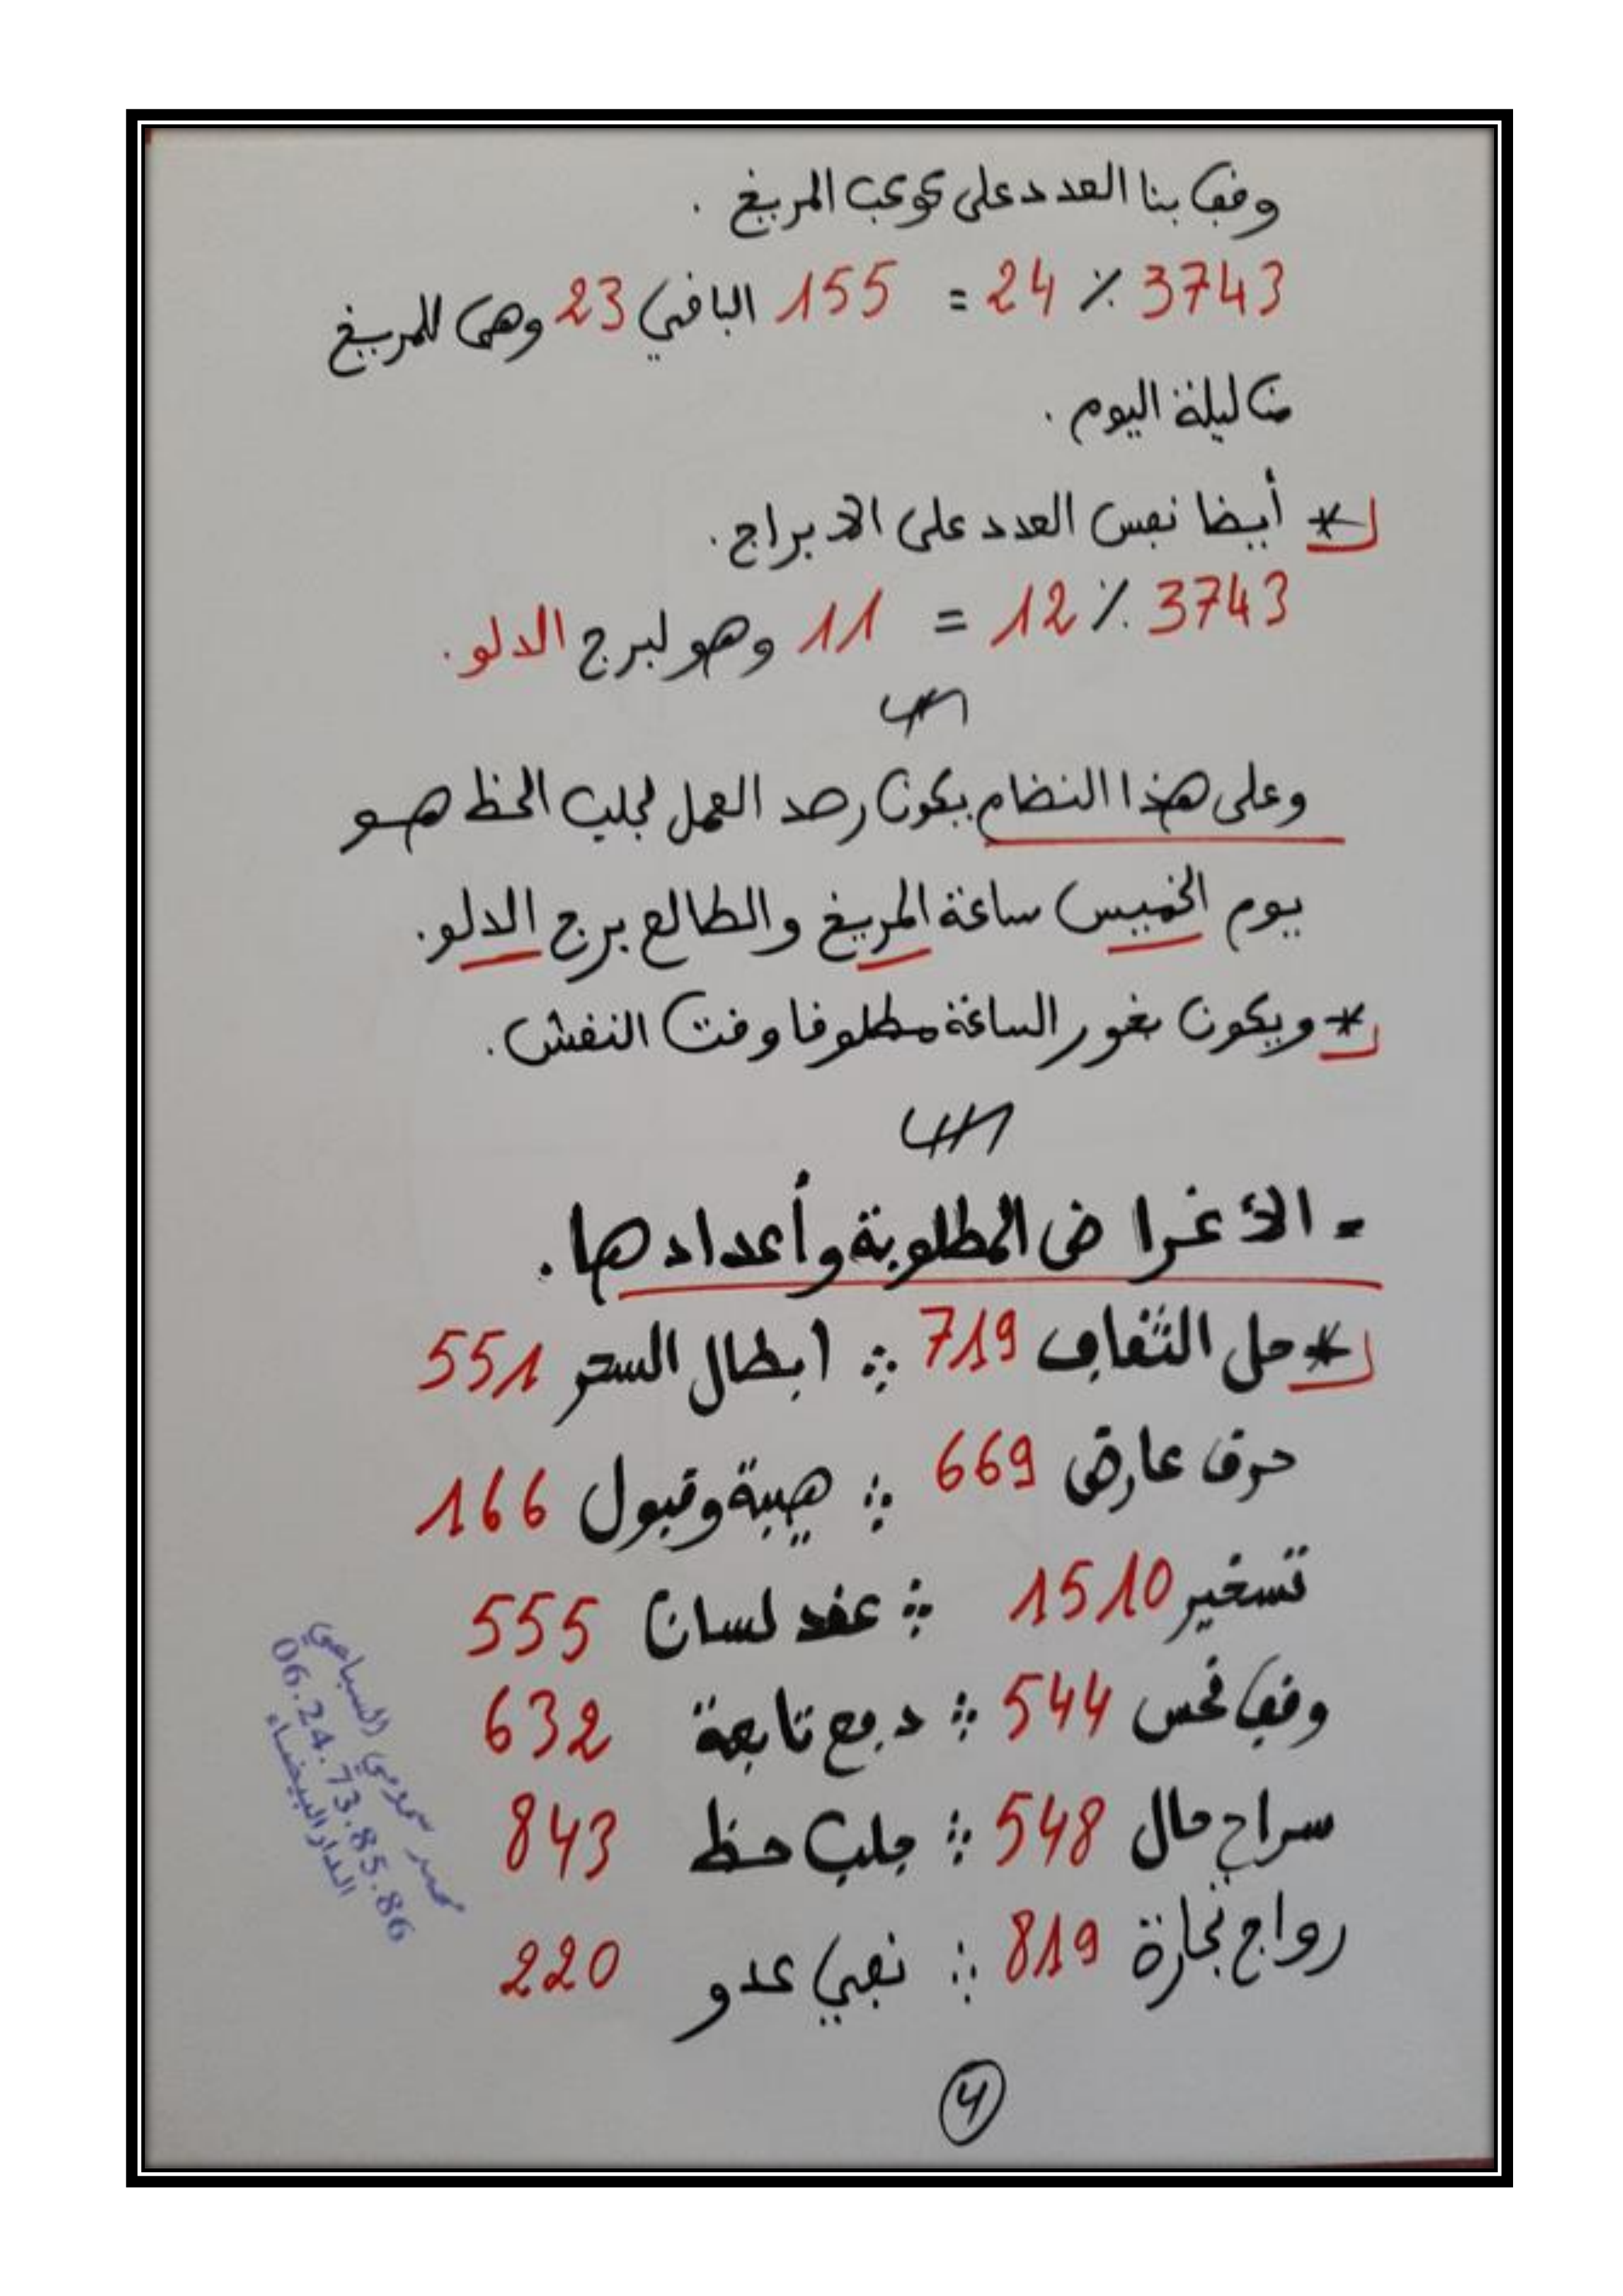 وقف بنا العدد على كوكب المريخ .
3743 ٪ 24 = 155 الباقي 23 وهي للمريخ
من ليلة اليوم .
* أيضا نفس العدد على الابراج .
3743 ٪ 12 = 11 وهو لبرج الدلو .
وعلى هذا النظام يكون رصد العمل لجلب الحظ هو
يوم الخميس ساعة المريخ والطالع برج الدلو .
* ويكون بخور الساعة مطلوقا وقت النقش .
- الأغراض المطلوبة وأعدادها .
* حل الثقاف 719 ∴ ابطال السحر 551
حرق عارض 669 ∴ هيبة وقبول 166
تسخير 1510 ∴ عقد لسان 555
وقف نحس 544 ∴ دفع تابعة 632
سراح مال 548 ∴ جلب حظ 843
رواج تجارة 819 ∴ نفي عدو 220
محمد سملامي السباعي
06.24.73.85.86
الدار البيضاء
4